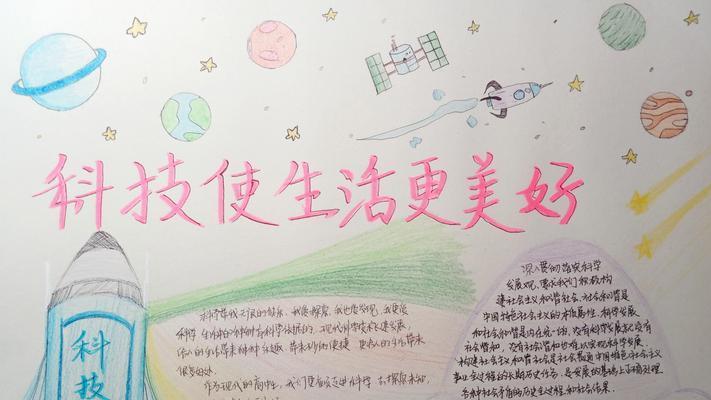 科技使生活更美好
科技
科技带我无限的好奇，我要探索，我也要发现，我更应
科学
生活中的种种都有科学依据的，现代科学技术飞速发展，
给人们的生活带来种种乐趣，带来别的便捷，更为人们生活带来
很多好处。
作为现代的高中生，我们更应该走进科学，去探索未知，
深入贯彻落实科学
发展观，要求我们积极构
建社会主义和谐社会。社会和谐是
中国特色社会主义的本质属性。科学发展
和社会和谐是内在统一的，没有科学发展就没有
社会和谐，没有社会和谐也难以实现科学发展。
构建社会主义和谐社会是贯穿中国特色社会主义
事业全过程的长期历史任务，是在发展的基础上正确处理
各种社会矛盾的历史过程和社会结果。